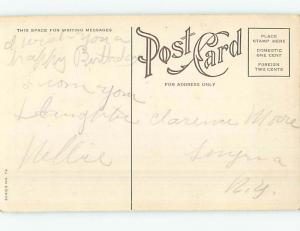 THIS SPACE FOR WRITING MESSAGES
Post Card
FOR ADDRESS ONLY
PLACE
STAMP HERE
DOMESTIC
ONE CENT
FOREIGN
TWO CENTS
I wish you a
happy Birthday
from your
Daughter
Nellie
Clarence Moore
Smyrna
N.Y.